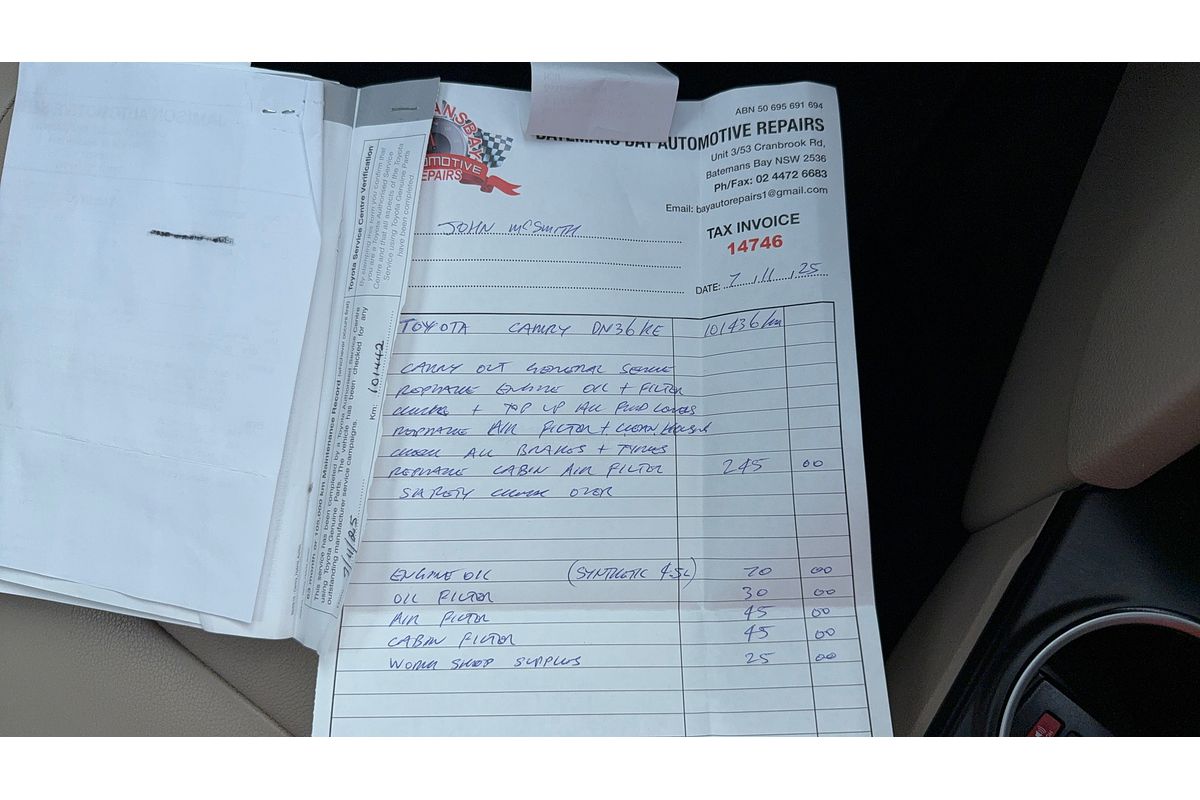 ABN 50 695 691 694
BATEMANS BAY AUTOMOTIVE REPAIRS
Unit 3/53 Cranbrook Rd,
Batemans Bay NSW 2536
Ph/Fax: 02 4472 6683
Email: bayautorepairs1@gmail.com
TAX INVOICE
14746
DATE: 7 / 11 / 25
ANSBAY
OMOTIVE
EPAIRS
JOHN McSMITH
TOYOTA CAMRY DN36KE 101436 km
CARRY OUT GENERAL SERVICE
REPLACE ENGINE OIL + FILTER
CHECK + TOP UP ALL FLUID LEVELS
REPLACE AIR FILTER + CLEAN HOUSING
CHECK ALL BRAKES + TYRES
REPLACE CABIN AIR FILTER 245 00
SAFETY CHECK OVER
ENGINE OIL (SYNTHETIC 4.5L) 70 00
OIL FILTER 30 00
AIR FILTER 45 00
CABIN FILTER 45 00
WORK SHOP SUPPLIES 25 00
Toyota Service Centre Verification
By stamping this form you confirm that
you are a Toyota Authorised Service
Centre and that all aspects of the Toyota
Service using Toyota Genuine Parts
have been completed.
63 month or 105,000 km Maintenance Record (whichever occurs first)
This service has been completed by a Toyota Authorised Service Centre
using Toyota Genuine Parts. The vehicle has been checked for any
outstanding manufacturer service campaigns.
Km: 101442
7/11/25